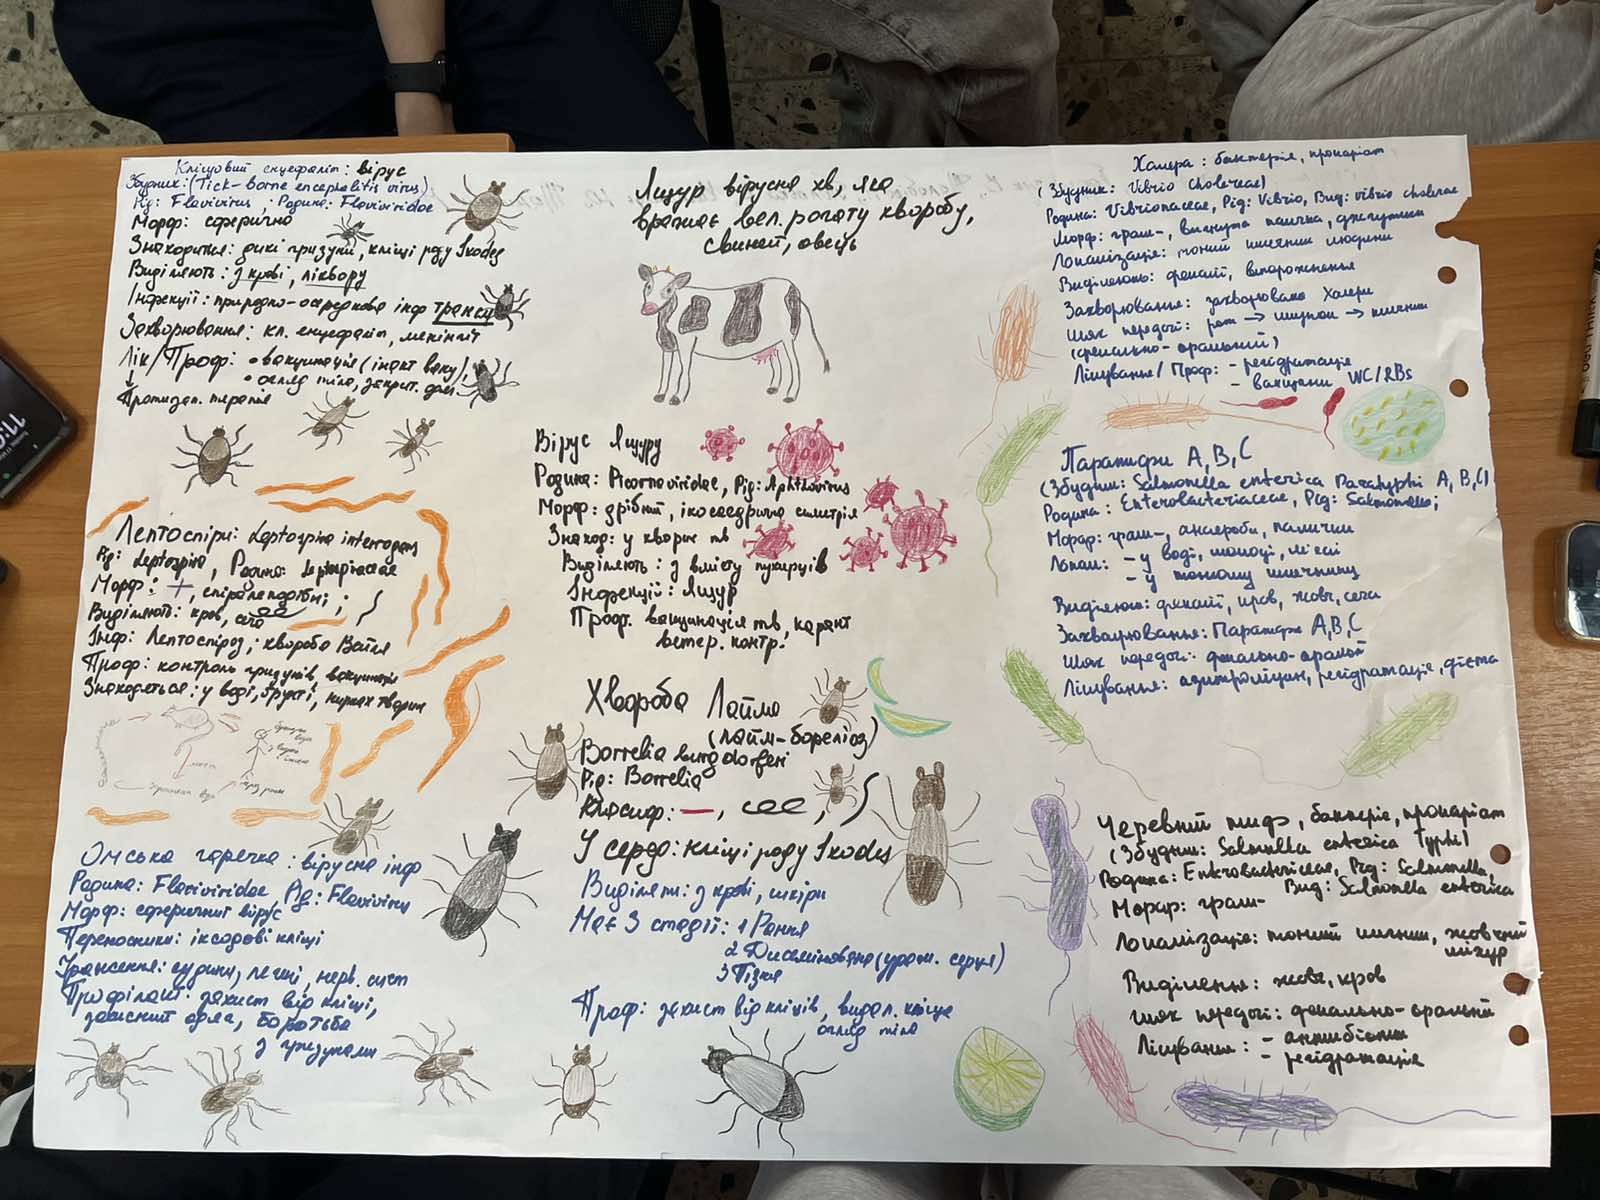 Кліщовий енцефаліт: вірус
Збудник: (Tick-borne encephalitis virus)
Рід: Flavivirus; Родина: Flaviviridae
Морф: сферична
Знаходиться: дикі гризуни, кліщі роду Ixodes
Виділяють: з крові, ліквору
Інфекції: природно-осередкова інф
Захворювання: кл. енцефаліт, менінгіт
Лік/Проф: • вакцинація (інакт вакц)
• огляд тіла, закрит. одяг
Протизап. терапія
Лептоспіри: Leptospira interrogans
Рід: Leptospira, Родина: Leptospiraceae
Морф: , спіралеподібні;
Виділяють: кров, сеча
Інф: Лептоспіроз; хвороба Вайля
Проф: контроль гризунів, вакцинація
Знаходяться: у воді, ґрунті, нирках тварин
Омська гарячка: вірусна інф
Родина: Flaviviridae Рід: Flavivirus
Морф: сферичний вірус
Переносники: іксодові кліщі
Ураження: судини, легені, нерв. сист
Профілакт: захист від кліщів,
захисний одяг, боротьба
з гризунами
Ящур вірусна хв, яка
вражає вел. рогату хворобу,
свиней, овець
Вірус Ящуру
Родина: Picornaviridae, Рід: Aphthovirus
Морф: дрібний, ікосаедрична симетрія
Знаход: у хворих тв
Виділяють: з вмісту пухирців
Інфекції: Ящур
Проф. вакцинація тв, карант
ветер. контр.
Хвороба Лайма
(лайм-бореліоз)
Borrelia burgdorferi
Рід: Borrelia
Класиф: —,
У серед: кліщі роду Ixodes
Виділяти: з крові, шкіри
Має 3 стадії: 1 Рання
2 Дисемінована (ураж. серця)
3 Пізня
Проф: захист від кліщів, видал. кліща
огляд тіла
Холера: бактерія, прокаріот
(Збудник: Vibrio cholerae)
Родина: Vibrionaceae, Рід: Vibrio, Вид: Vibrio cholerae
Морф: грам-, вигнута паличка, джгутики
Локалізація: тонкий кишечник людини
Виділяють: фекалії, випорожнення
Захворювання: захворювання Холери
Шлях передачі: рот → шлунок → кишечник
(фекально-оральний)
Лікування/Проф: - регідратація
- вакцини WC/RBs
Паратифи A, B, C
(Збудник: Salmonella enterica Paratyphi A, B, C)
Родина: Enterobacteriaceae, Рід: Salmonella;
Морф: грам-, анаероби, палички
Локал: - у воді, молоці,
- у тонкому кишечнику
Виділяють: фекалії, кров, жовч, сеча
Захворювання: Паратифи A, B, C
Шлях передачі: фекально-оральний
Лікування: азитроміцин, регідратація, дієта
Черевний тиф, бактерія, прокаріот
(Збудник: Salmonella enterica Typhi)
Родина: Enterobacteriaceae, Рід: Salmonella,
Вид: Salmonella enterica
Морф: грам-
Локалізація: тонкий кишечник, жовчний
міхур
Виділення: жовч, кров
Шлях передачі: фекально-оральний
Лікування: - антибіотики
- регідратація